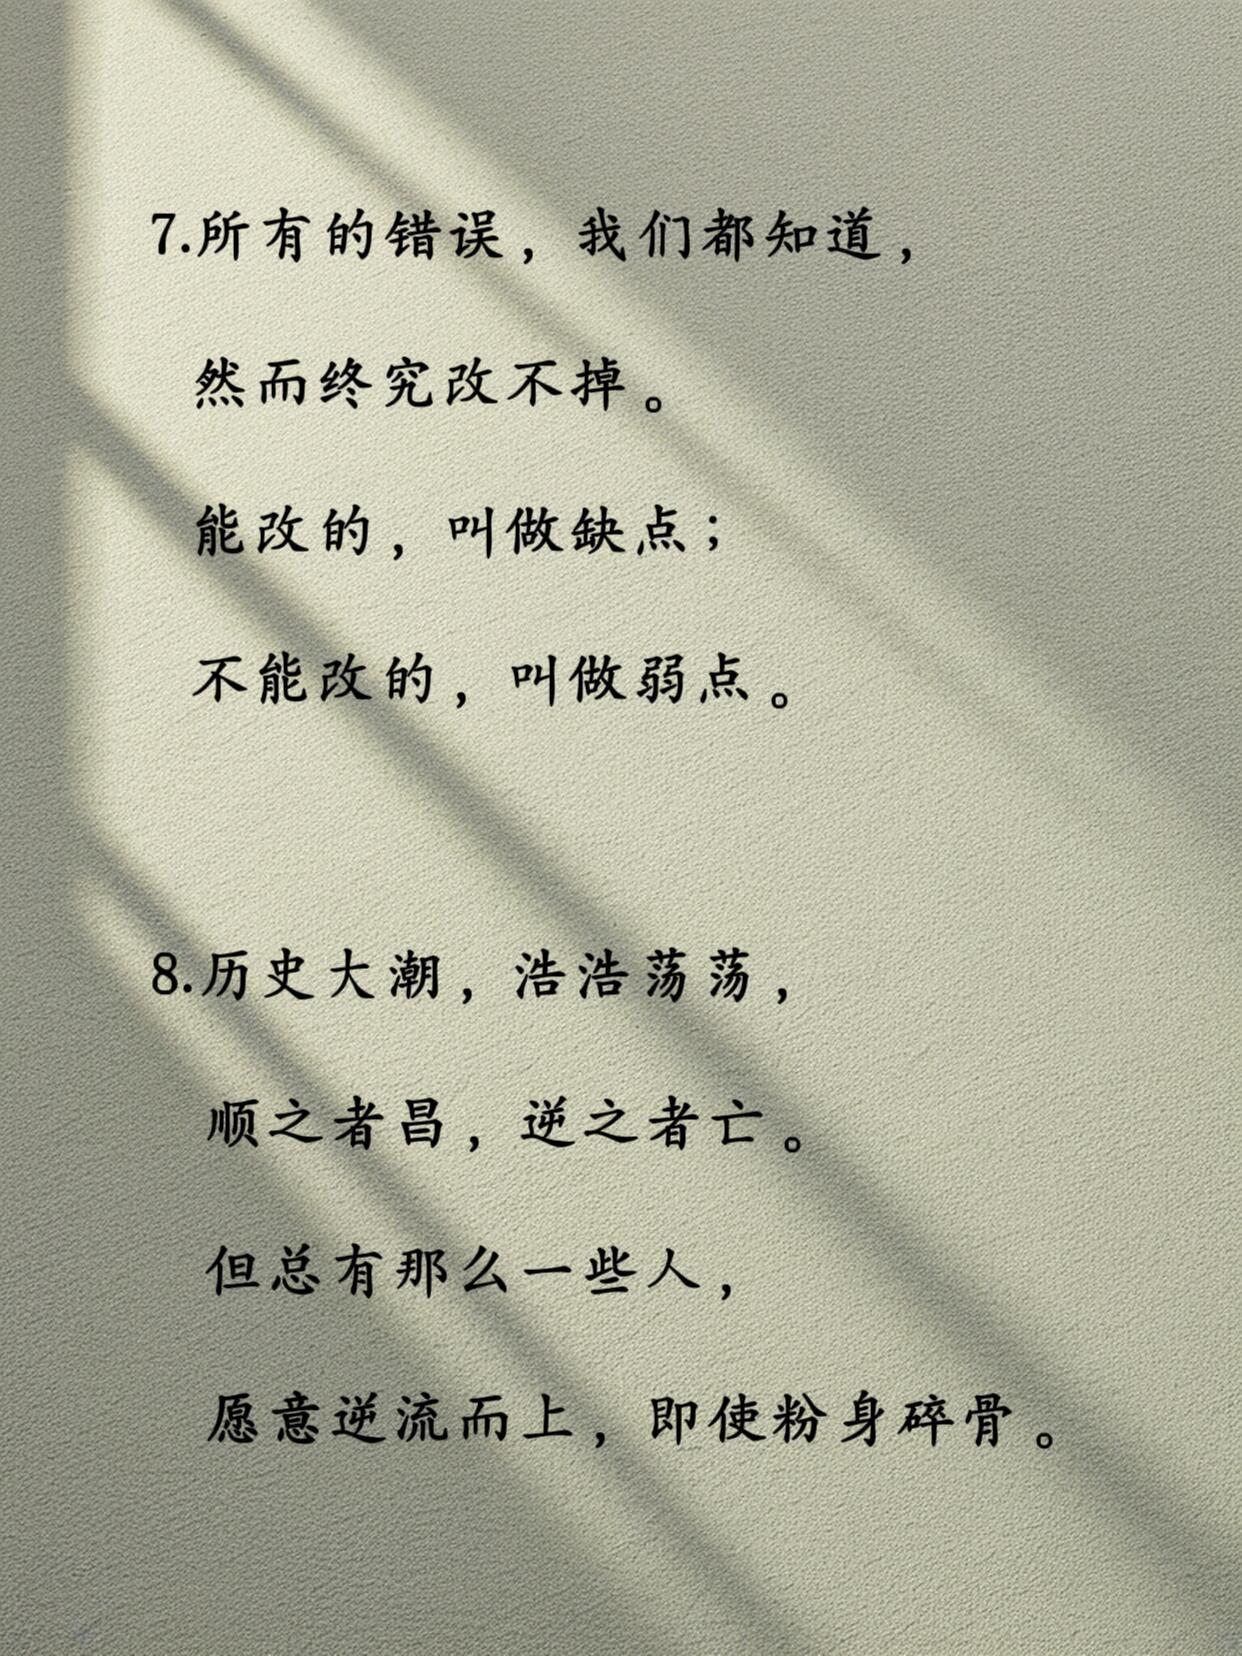 7.所有的错误，我们都知道，
然而终究改不掉。
能改的，叫做缺点；
不能改的，叫做弱点。
8.历史大潮，浩浩荡荡，
顺之者昌，逆之者亡。
但总有那么一些人，
愿意逆流而上，即使粉身碎骨。